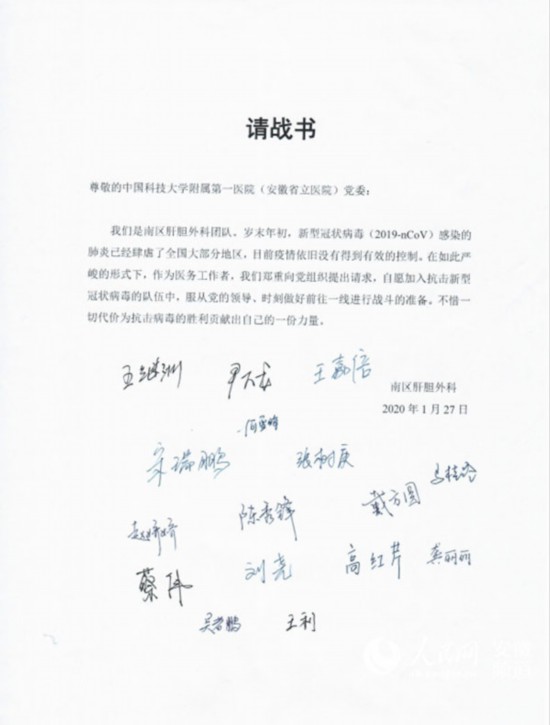 请战书
尊敬的中国科技大学附属第一医院（安徽省立医院）党委：
我们是南区肝胆外科团队。岁末年初，新型冠状病毒（2019-nCoV）感染的
肺炎已经肆虐了全国大部分地区，目前疫情依旧没有得到有效的控制。在如此严
峻的形式下，作为医务工作者，我们郑重向党组织提出请求，自愿加入抗击新型
冠状病毒的队伍中，服从党的领导、时刻做好前往一线进行战斗的准备。不惜一
切代价为抗击病毒的胜利贡献出自己的一份力量。
王继洲 尹大龙 王嘉倍
南区肝胆外科
2020 年 1 月 27 日
宋瑞鹏
陈秀锋 戴方圆
蔡伟 刘尧 高红芹 龚丽丽
王利
人民网 安徽